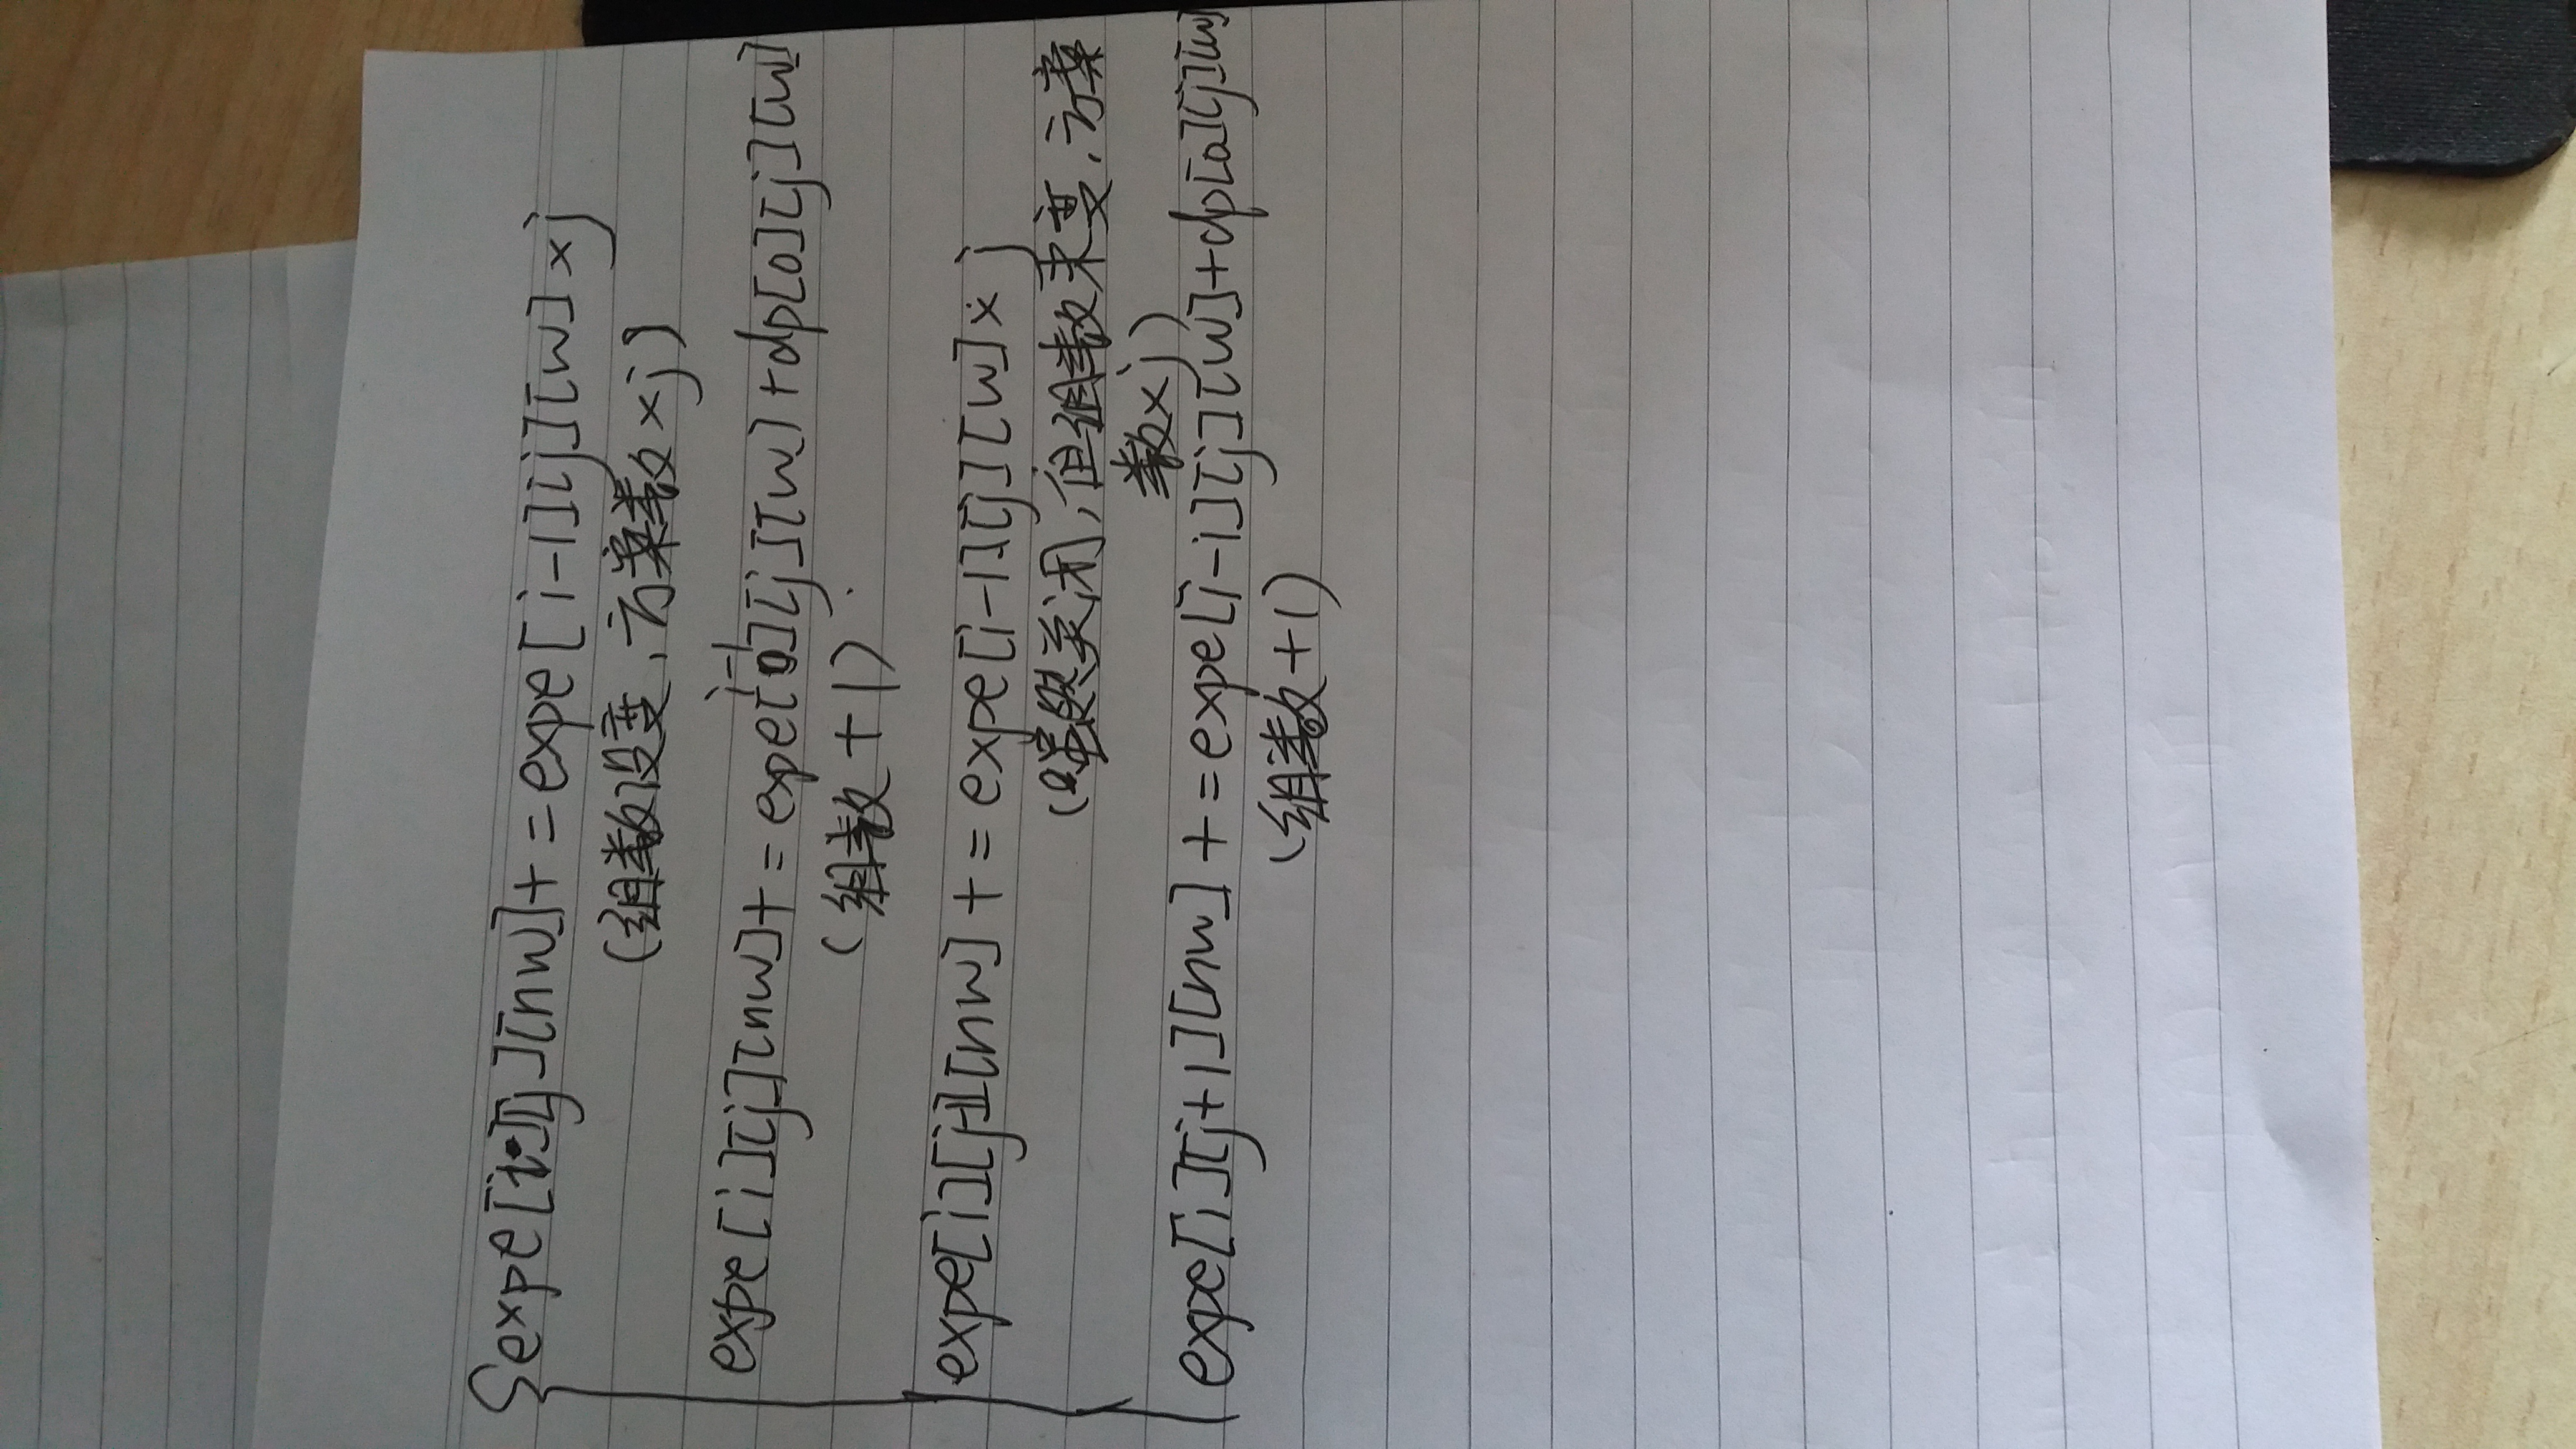 expe[i][j][nw]+=expe[i-1][j][w]×j
(组数没变,方案数×j)
expe[i][j][nw]+=expe[i-1][j][w]+dp[o][j][w]
(组数+1)
expe[i][j-1][nw]+=expe[i-1][j][w]×j
(虽然关闭,但组数未变,方案
数×j)
expe[i][j+1][nw]+=expe[i-1][j][w]+dp[o][j][w]
(组数+1)